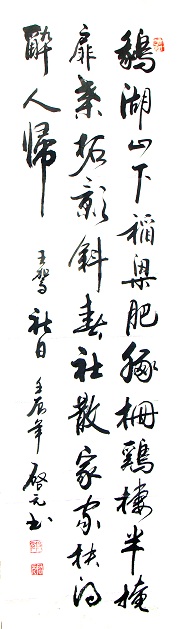 鵝湖山下稻粱肥豚柵鷄棲半掩
扉桑柘影斜春社散家家扶得
醉人歸
王駕社日壬辰年啟元书